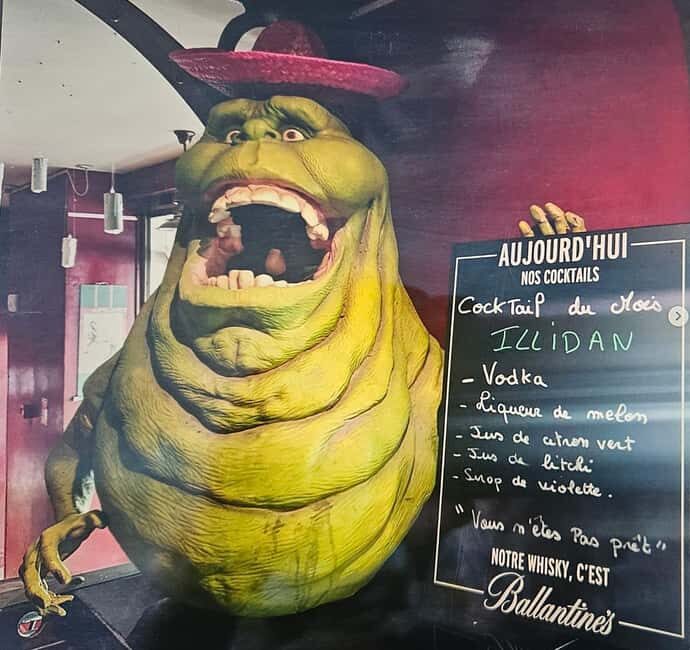 AUJOURD'HUI
NOS COCKTAILS
Cocktail du Mois
ILLIDAN
- Vodka
- Liqueur de melon
- Jus de citron vert
- Jus de litchi
- Sirop de violette.
"Vous n'êtes Pas prêt"
NOTRE WHISKY, C'EST
Ballantine's